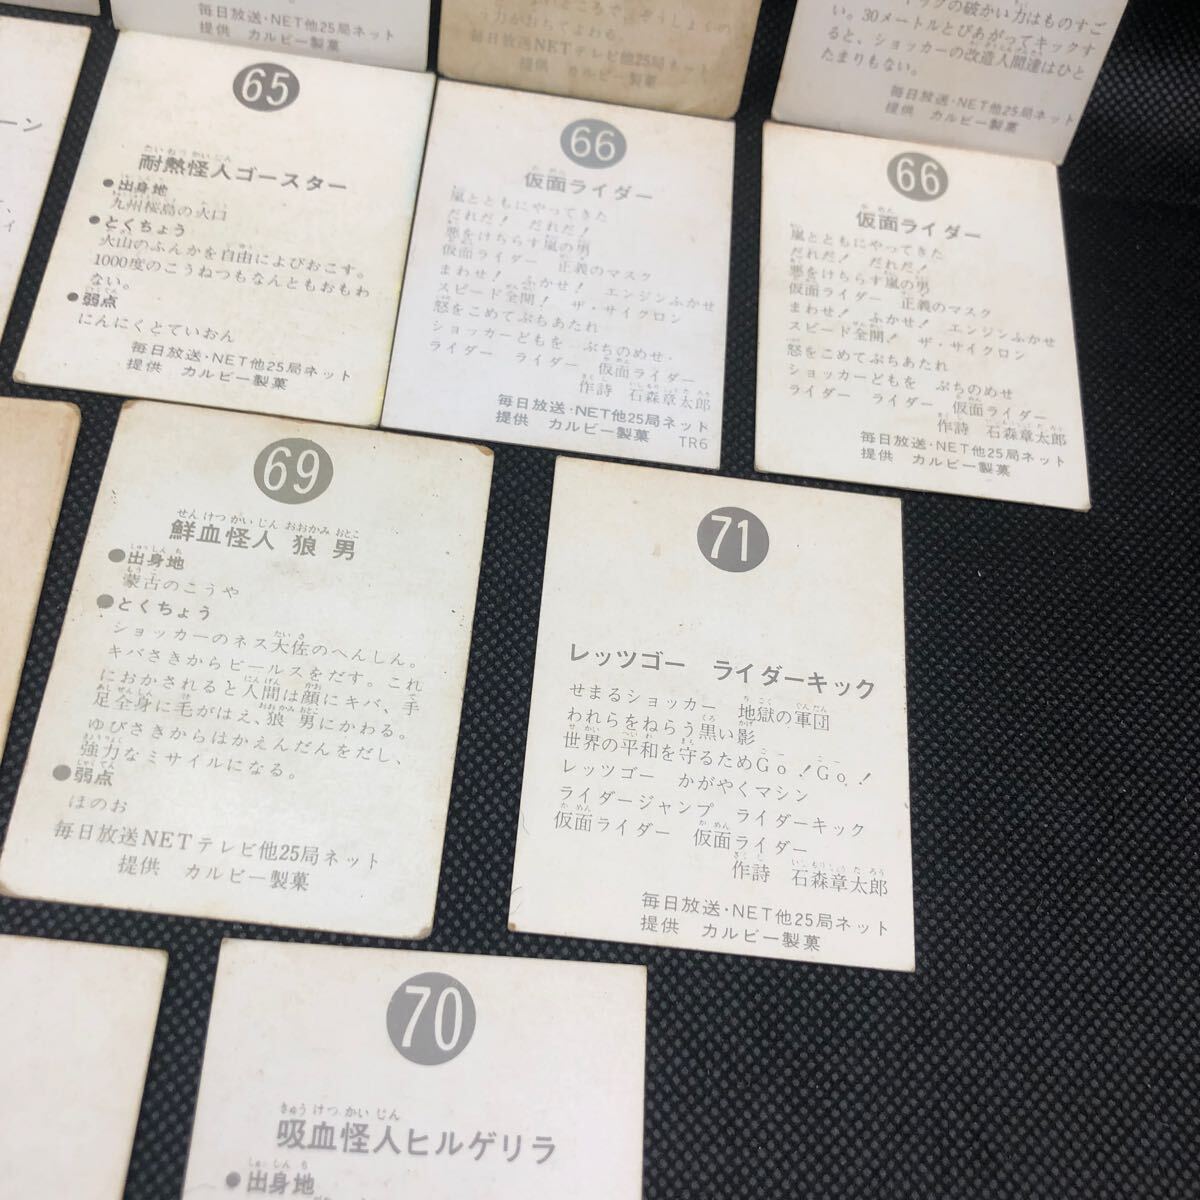 毎日放送・NET他25局ネット
提供　カルビー製菓
毎日放送NETテレビ他25局ネット
提供　カルビー製菓
の破かい力はものすご
い。30メートルとびあがってキックす
ると、ショッカーの改造人間達はひと
たまりもない。
毎日放送・NET他25局ネット
提供　カルビー製菓
65
たいねつかいじん
耐熱怪人ゴースター
●出身地
九州桜島の火口
●とくちょう
火山のふんかを自由によびおこす。
1000度のこうねつもなんともおもわ
ない。
●弱点
にんにくとていおん
毎日放送・NET他25局ネット
提供　カルビー製菓
66
かめん
仮面ライダー
嵐とともにやってきた
だれだ！　だれだ！
悪をけちらす嵐の男
仮面ライダー　正義のマスク
まわせ！　ふかせ！　エンジンふかせ
スピード全開！　ザ・サイクロン
怒をこめてぶちあたれ
ショッカーどもを　ぶちのめせ・
ライダー　ライダー　仮面ライダー
作詩　石森章太郎
毎日放送・NET他25局ネット
提供　カルビー製菓　TR6
66
かめん
仮面ライダー
嵐とともにやってきた
だれだ！　だれだ！
悪をけちらす嵐の男
仮面ライダー　正義のマスク
まわせ！　ふかせ！　エンジンふかせ
スピード全開！　ザ・サイクロン
怒をこめてぶちあたれ
ショッカーどもを　ぶちのめせ
ライダー　ライダー　仮面ライダー
作詩　石森章太郎
毎日放送・NET他25局ネット
提供　カルビー製菓
69
せんけつかいじん　おおかみおとこ
鮮血怪人　狼男
●出身地
蒙古のこうや
●とくちょう
ショッカーのネス大佐のへんしん。
キバさきからビールスをだす。これ
におかされると人間は顔にキバ、手
足全身に毛がはえ、狼男にかわる。
ゆびさきからはかえんだんをだし、
強力なミサイルになる。
●弱点
ほのお
毎日放送NETテレビ他25局ネット
提供　カルビー製菓
71
レッツゴー　ライダーキック
せまるショッカー　地獄の軍団
われらをねらう黒い影
世界の平和を守るためGo！Go！
レッツゴー　かがやくマシン
ライダージャンプ　ライダーキック
仮面ライダー　仮面ライダー
作詩　石森章太郎
毎日放送・NET他25局ネット
提供　カルビー製菓
70
きゅうけつかいじん
吸血怪人ヒルゲリラ
●出身地